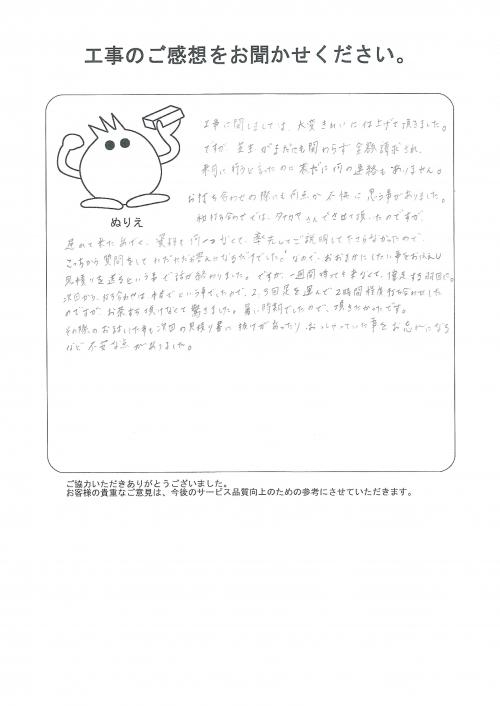 工事のご感想をお聞かせください。
工事に関しましては、大変きれいに仕上げて頂きました。
ですが、芝生がまだにも関わらず全額請求され、
来月に行うと言ったのに未だに何の連絡もありません。
お打ち合わせの際にも何点か不快に思う事がありました。
初打ち合わせでは、さんでさせて頂いたのですが、
ぬりえ
進めて来たあげく、資料も何一つなくて、率先してご説明して下さらなかったので
こっちから質問をして
見積りを送るという事で話が終わりました。ですが、一週間待っても来なくて、催促する羽目に。
次回から、打ち合わせは本社でという事でしたので、2、3回足を運んで2時間程度打ち合わせした
のですが、お茶すら頂けなくて驚きました。暑い時期でしたので、頂きたかったです。
その際のお話した事も次回の見積り書に抜けがあったり、おっしゃっていた事をお忘れになる
など不安な点がありました。
ご協力いただきありがとうございました。
お客様の貴重なご意見は、今後のサービス品質向上のための参考にさせていただきます。